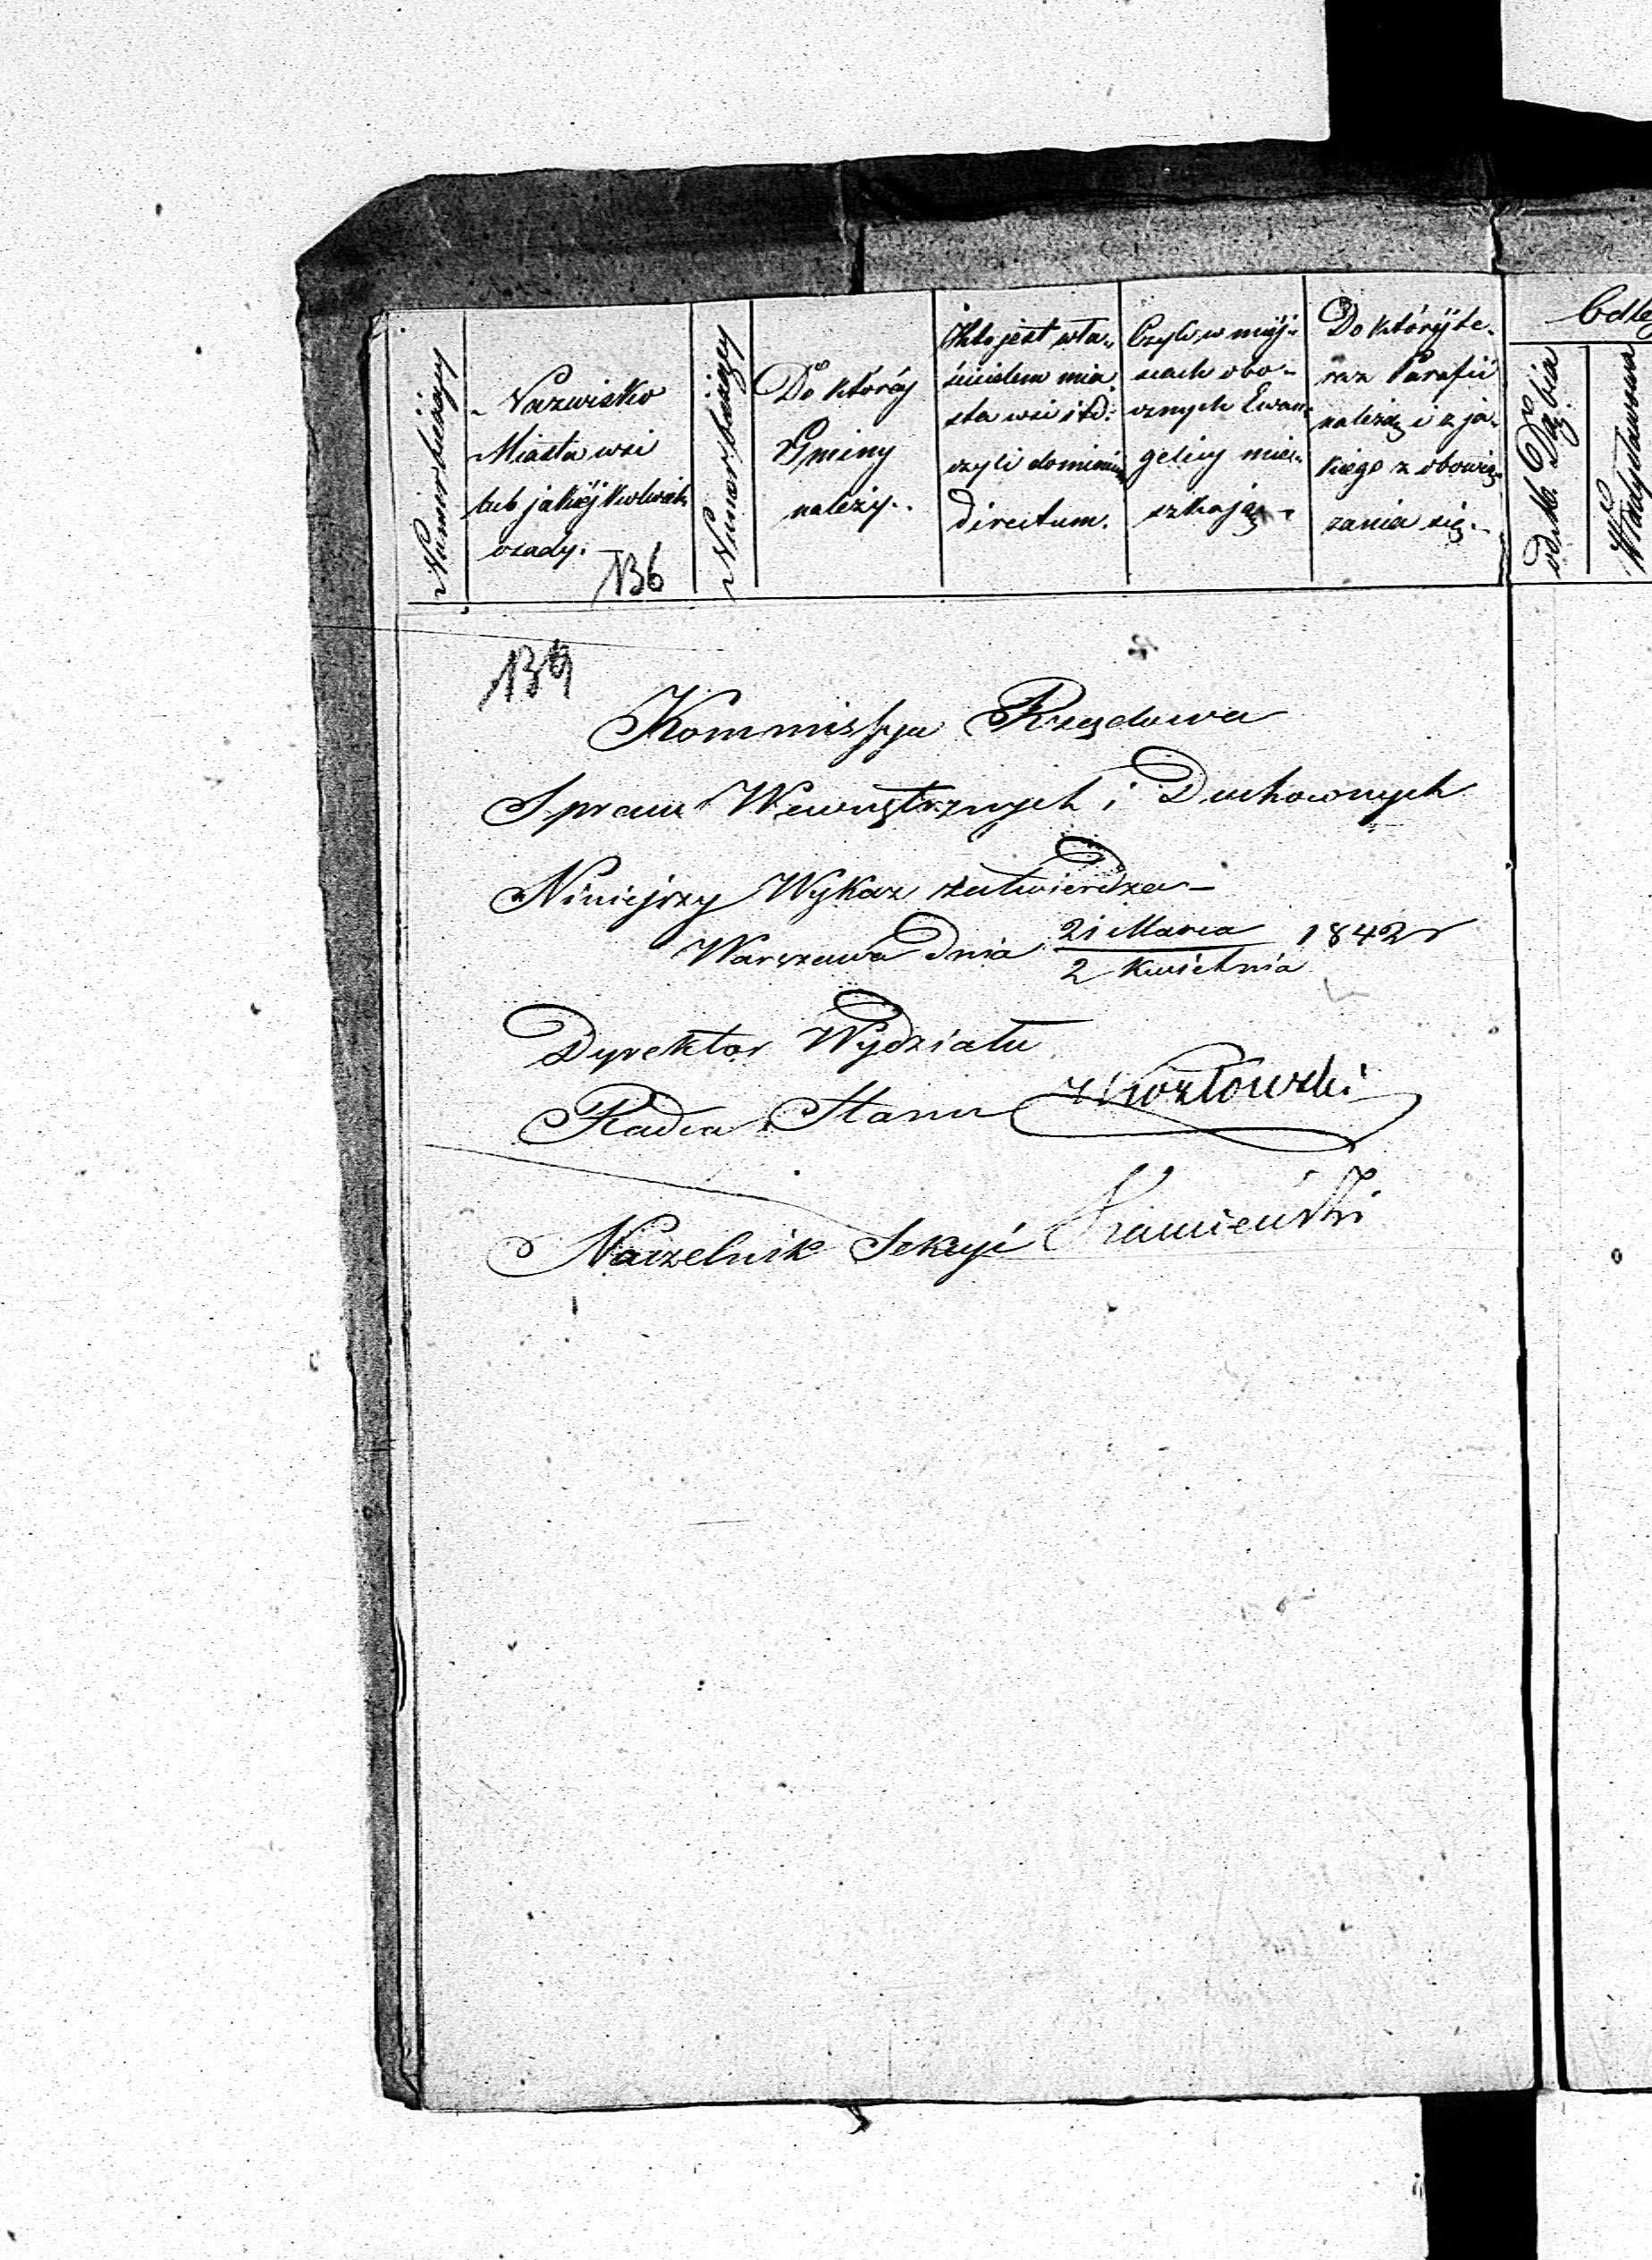 Numer bieżący
Nazwisko
Miasta wsi
lub jakiéj kolwiek
osady.
136
Numer bieżący
Do któréj
Gminy
należy.
Kto jest wła-
ścicielem mia-
sta wsi i t d:
czyli dominium
directum.
Czyli w miéj-
scach obo-
cznych Ewan-
gelicy miesz-
szkają
Do któréj te-
raz Parafii
należą i z ja-
kiego z obowią-
zania się.
Odle
od M. Dąbia
Władysławowa
139
Kommissya Rządowa
Spraw Wewnętrznych i Duchownych
Niniejszy Wykaz zatwierdza
Warszawa dnia 21 Marca 1842 r
2 Kwietnia
Dyrektor Wydziału
Radca Stanu Kozłowski
Naczelnik Sekcyi Kamieński